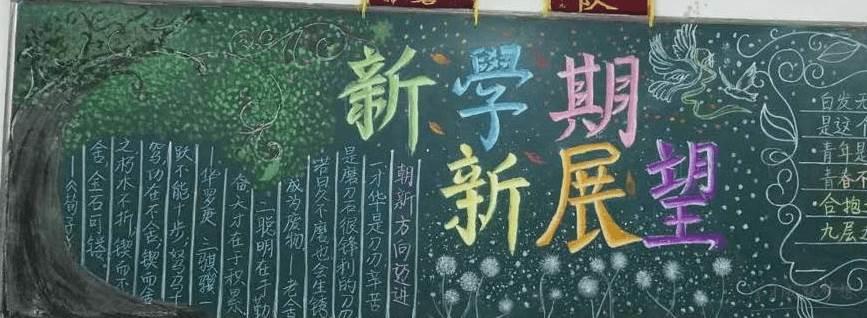 新學期
新展望
朝新方向迈进
一才华是刀刃辛苦
是磨刀石很锋利的刀刃
若日久不磨也会生锈
成为废物——老舍
二聪明在于勤
奋天才在于积累
——华罗庚 三骐骥一
跃不能十步驽马十
驾功在不舍锲而舍
之朽木不折锲而不
舍金石可镂
——《荀子》
·白发
是这
·青年是
青春不
·合抱
九层